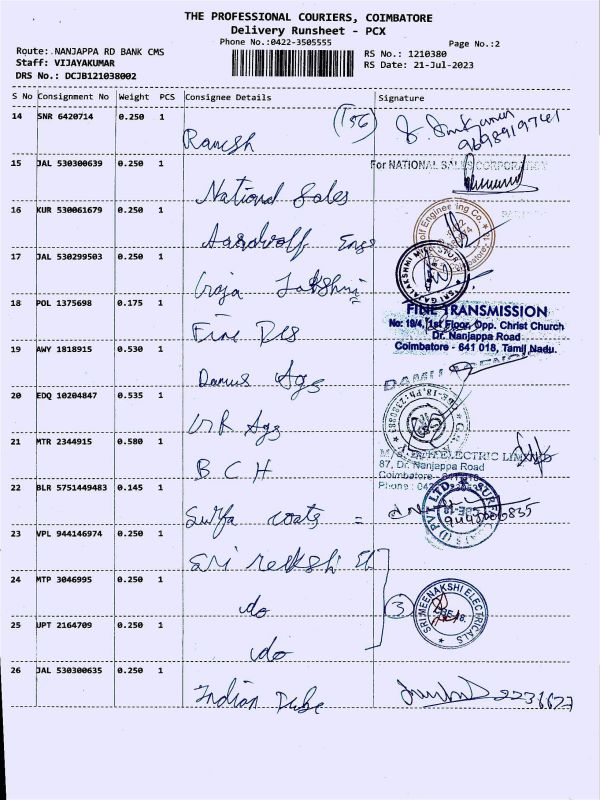 THE PROFESSIONAL COURIERS, COIMBATORE
Delivery Runsheet - PCX
Phone No.:0422-3505555
Page No.:2
Route: NANJAPPA RD BANK CMS
Staff: VIJAYAKUMAR
DRS No.: DCJB121038002
RS No.: 1210380
RS Date: 21-Jul-2023
S No Consignment No Weight PCS Consignee Details Signature
14 SNR 6420714 0.250 1 Ramesh (156) 9698919741
15 JAL 530300639 0.250 1 National Sales For NATIONAL SALES CORPORATION
16 KUR 530061679 0.250 1 Aardwolf Engg
17 JAL 530299503 0.250 1 Gaja Lakshmi
18 POL 1375698 0.175 1 Fine Trs
FINE TRANSMISSION
No: 19/4, 1st Floor, Opp. Christ Church
Dr. Nanjappa Road
Coimbatore - 641 018, Tamil Nadu.
19 AWY 1818915 0.530 1 Damus Ags
20 EDQ 10204847 0.535 1 Ags
21 MTR 2344915 0.580 1 B C H
ELECTRIC LIMITED
87, Dr. Nanjappa Road
Coimbatore
Phone : 0422
22 BLR 5751449483 0.145 1 Surfa coats =
23 VPL 944146974 0.250 1 Sri
24 MTP 3046995 0.250 1 do (3) SRI MEENAKSHI ELECTRICALS
25 UPT 2164709 0.250 1 do
26 JAL 530300635 0.250 1 Indian Tube 2236627